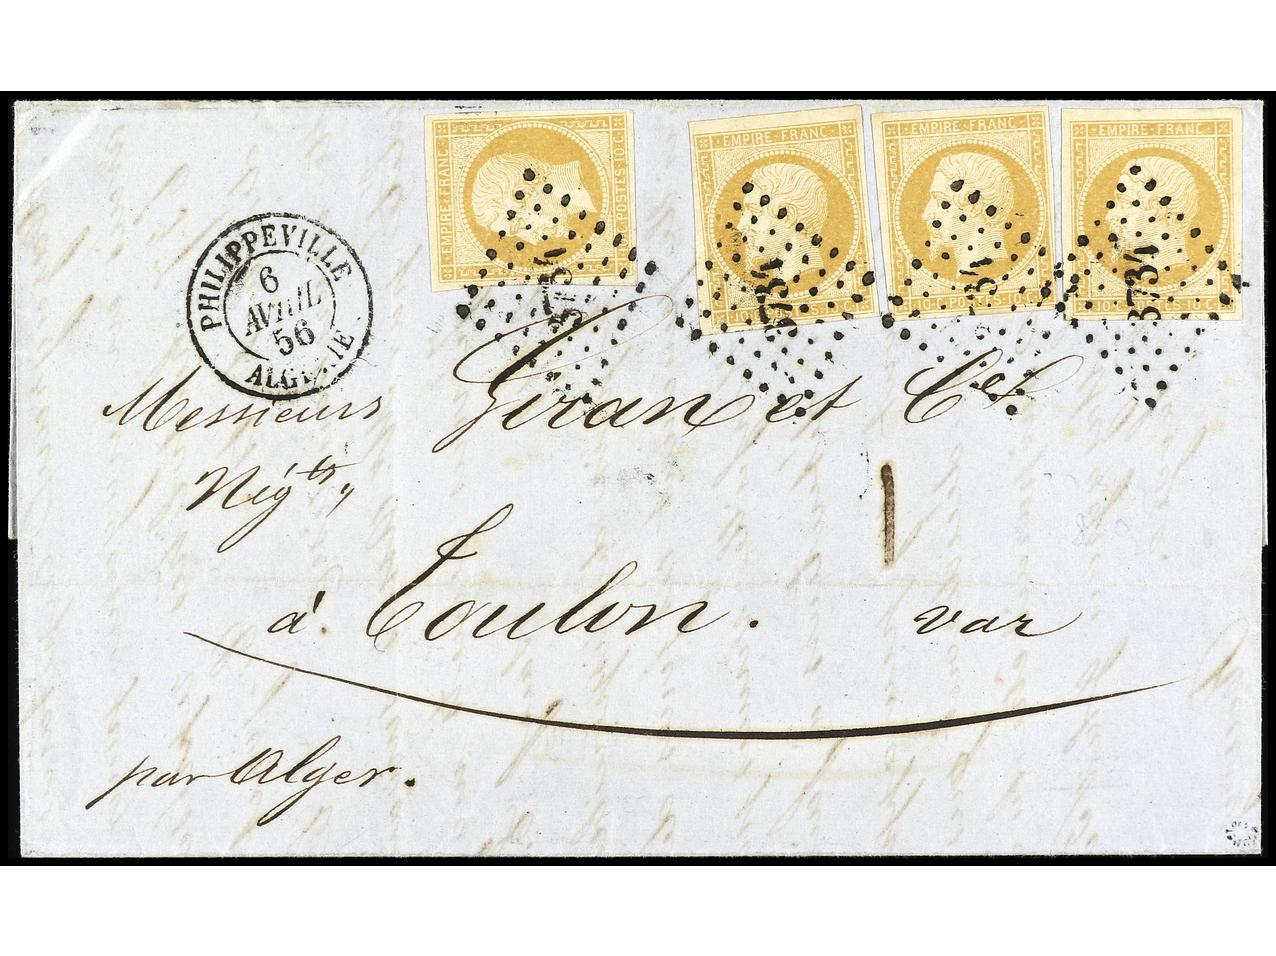 EMPIRE·FRANC.
POSTES·10·C.
EMPIRE·FRANC
·10·C·POSTES·10·C·
EMPIRE·FRANC
·10·C·POSTES·10·C·
EMPIRE·FRANC
·10·C·POSTES·10·C·
3734
3734
3734
PHILIPPEVILLE
6
AVRIL
56
ALGÉRIE
Messieurs Giran et Cie
Négts
à Toulon. var
par Alger.